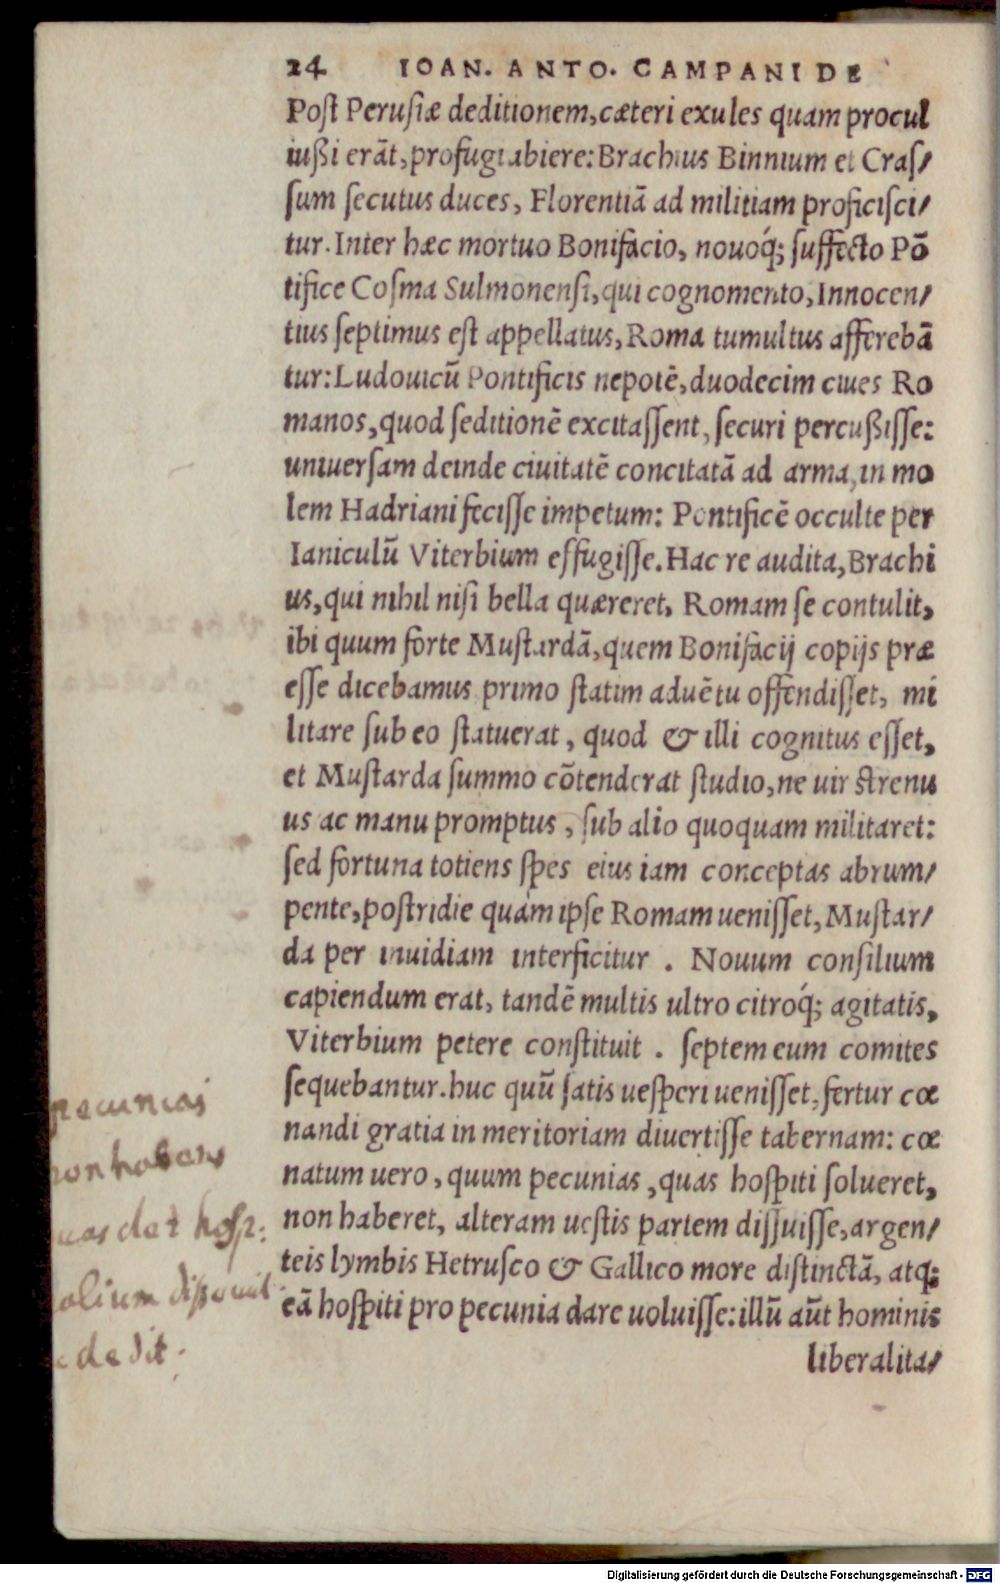 24 IOAN. ANTO. CAMPANI DE
Post Perusiæ deditionem, cæteri exules quam procul
iußi erãt, profugi abiere: Brachius Binnium et Cras/
sum secutus duces, Florentiã ad militiam proficisci/
tur. Inter hæc mortuo Bonifacio, nouoq́; suffecto Põ
tifice Cosma Sulmonensi, qui cognomento, Innocen/
tius septimus est appellatus, Roma tumultus afferebã
tur: Ludouicũ Pontificis nepotẽ, duodecim ciues Ro
manos, quod seditionẽ excitassent, securi percußisse:
uniuersam deinde ciuitatẽ concitatã ad arma, in mo
lem Hadriani fecisse impetum: Pontificẽ occulte per
Ianiculũ Viterbium effugisse. Hac re audita, Brachi
us, qui nihil nisi bella quæreret, Romam se contulit,
ibi quum forte Mustardã, quem Bonifacij copijs præ
esse dicebamus primo statim aduẽtu offendisset, mi
litare sub eo statuerat, quod & illi cognitus esset,
et Mustarda summo cõtenderat studio, ne uir strenu
us ac manu promptus, sub alio quoquam militaret:
sed fortuna totiens spes eius iam conceptas abrum/
pente, postridie quàm ipse Romam uenisset, Mustar/
da per inuidiam interficitur. Nouum consilium
capiendum erat, tandẽ multis ultro citroq́; agitatis,
Viterbium petere constituit. septem eum comites
sequebantur. huc quũ satis uesperi uenisset, fertur cœ
nandi gratia in meritoriam diuertisse tabernam: cœ
natum uero, quum pecunias, quas hospiti solueret,
non haberet, alteram uestis partem dissuisse, argen/
teis lymbis Hetrusco & Gallico more distinctã, atq;
eã hospiti pro pecunia dare uoluisse: illũ aũt hominis
liberalita/
pecunias
non habens
hosp:
dedit.
Digitalisierung gefördert durch die Deutsche Forschungsgemeinschaft - DFG